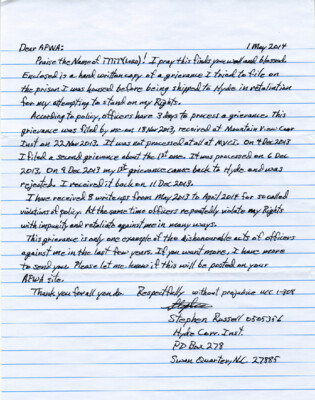 Dear APWA: 1 May 2014
Praise the Name of יהוה (YHWH)! I pray this finds you well and blessed.
Enclosed is a hand written copy of a grievance I tried to file on
the prison I was housed before being shipped to Hyde in retaliation
for my attempting to stand on my Rights.
According to policy, officers have 3 days to process a grievance. This
grievance was filed by me on 18 Nov 2013, received at Mountain View Corr
Inst on 22 Nov 2013. It was not processed at all at MVCI. On 4 Dec 2013
I filed a second grievance about the 1st one. It was processed on 6 Dec
2013. On 9 Dec 2013 my 1st grievance came back to Hyde and was
rejected. I received it back on 11 Dec 2013.
I have received 8 write ups from May 2013 to April 2014 for so called
violations of policy. At the same time officers repeatedly violate my Rights
with impunity and retaliate against me in many ways.
This grievance is only one example of the dishonorable acts of officers
against me in the last few years. If you want more, I have more
to send you. Please let me know if this will be posted on your
APWA site.
Thank you for all you do. Respectfully without prejudice UCC 1-308
Stephen Russell 0505356
Hyde Corr. Inst.
PO Box 278
Swan Quarter, NC. 27885